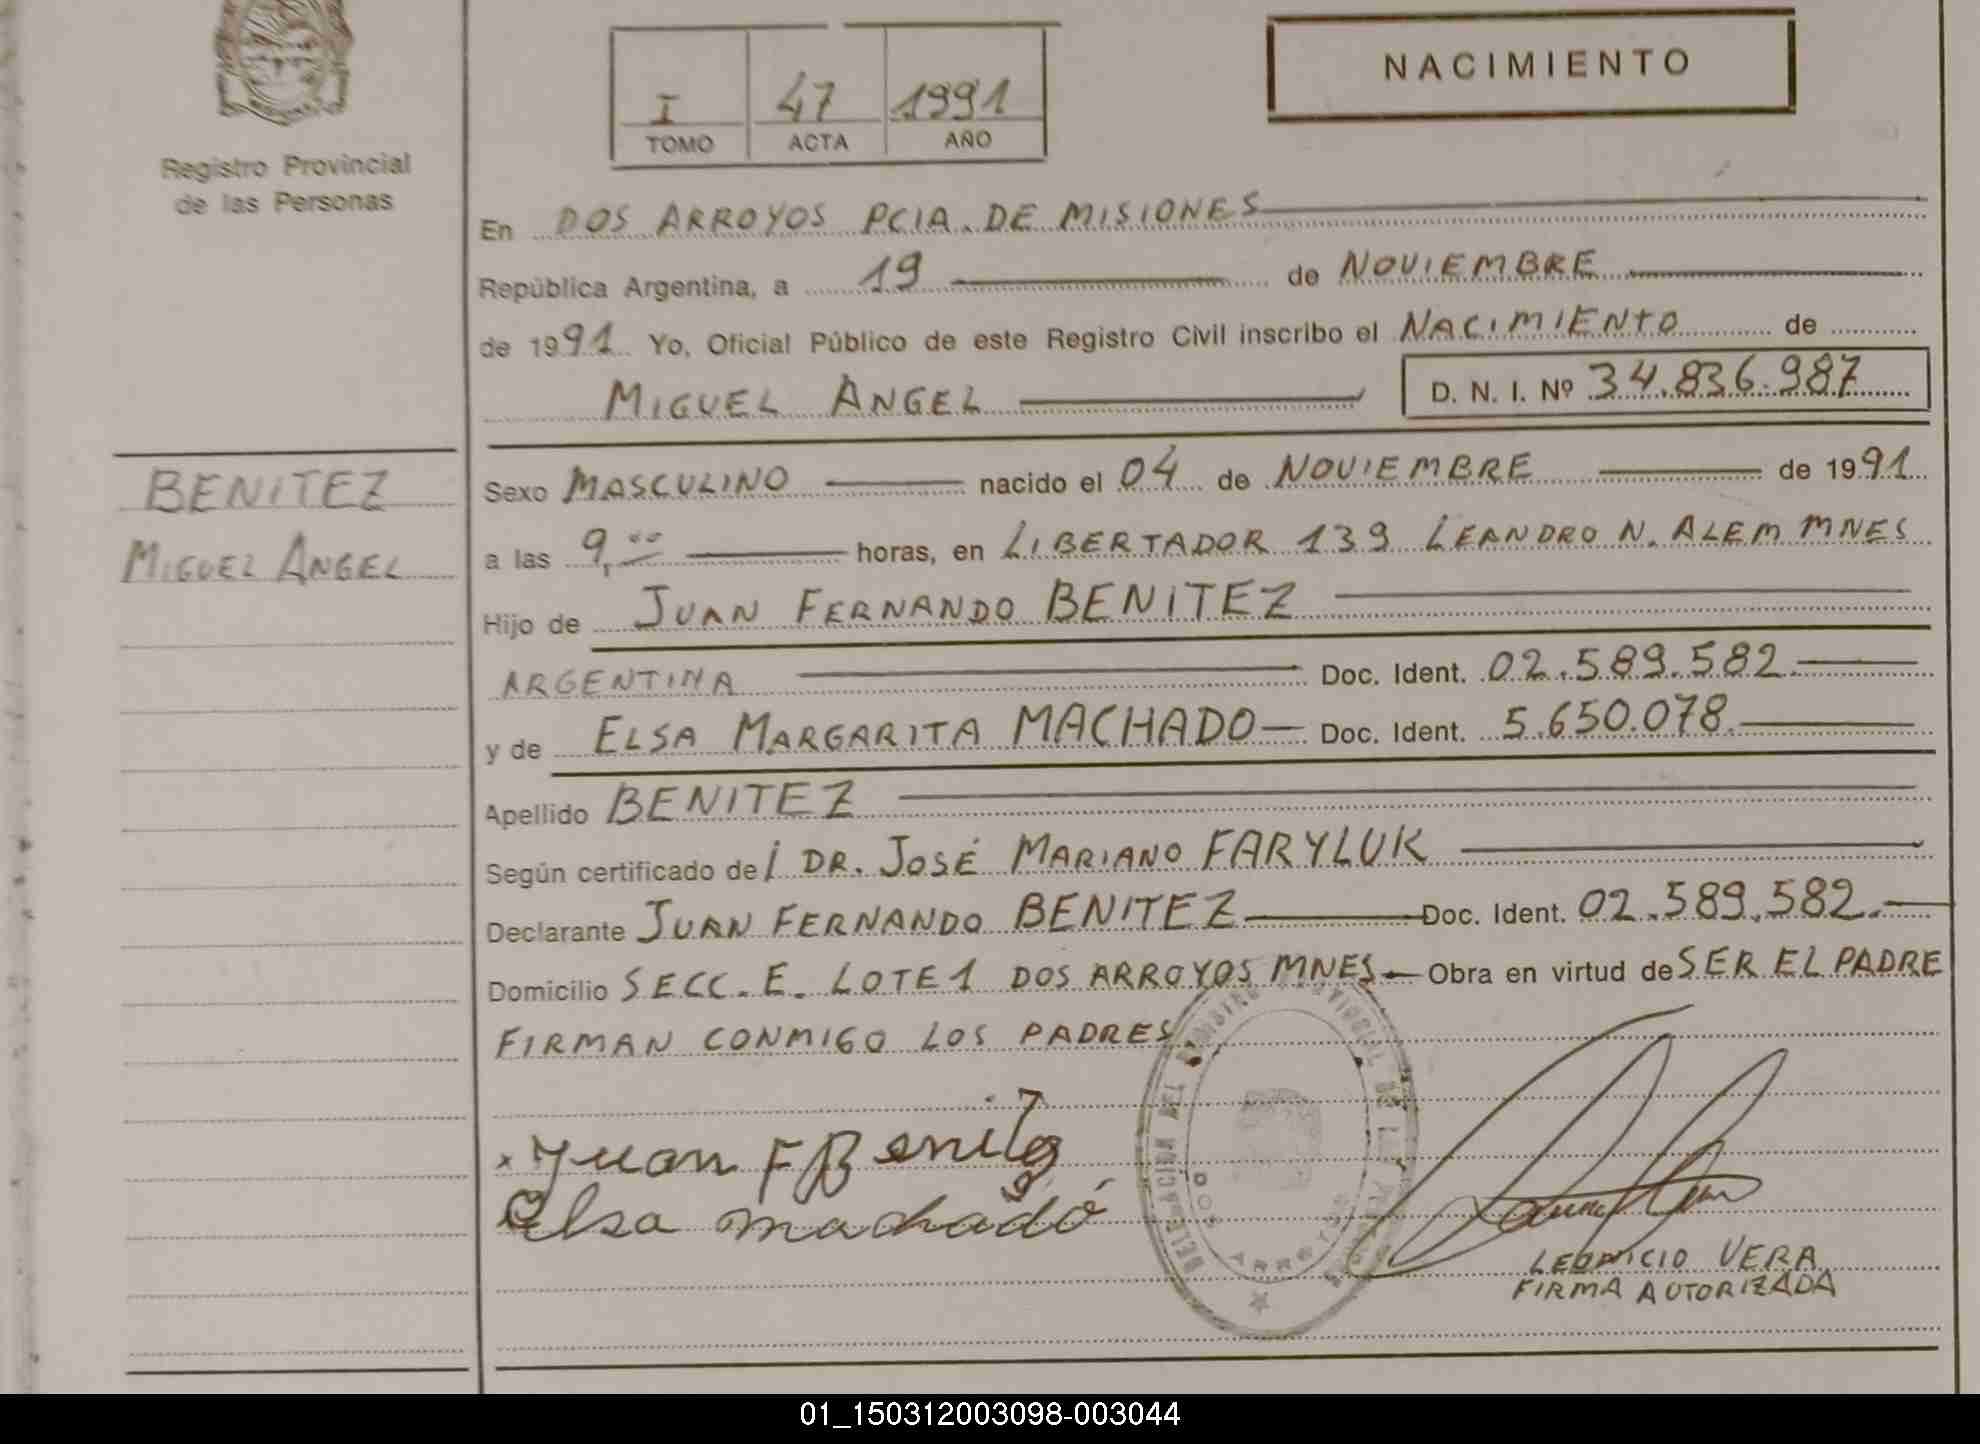 Registro Provincial
de las Personas
I 47 1991
TOMO ACTA AÑO
NACIMIENTO
En DOS ARROYOS PCIA. DE MISIONES
República Argentina, a 19 de NOVIEMBRE
de 1991 Yo, Oficial Público de este Registro Civil inscribo el NACIMIENTO de
MIGUEL ANGEL D. N. I. Nº 34.836.987
BENITEZ
MIGUEL ANGEL
Sexo MASCULINO nacido el 04 de NOVIEMBRE de 1991
a las 9,00 horas, en LIBERTADOR 139 LEANDRO N. ALEM MNES
Hijo de JUAN FERNANDO BENITEZ
ARGENTINA Doc. Ident. 02.589.582
y de ELSA MARGARITA MACHADO Doc. Ident. 5.650.078
Apellido BENITEZ
Según certificado del DR. JOSÉ MARIANO FARYLUK
Declarante JUAN FERNANDO BENITEZ Doc. Ident. 02.589.582.
Domicilio SECC. E. LOTE 1 DOS ARROYOS MNES Obra en virtud de SER EL PADRE
FIRMAN CONMIGO LOS PADRES.
x Juan F Benitez
Elsa machado
DOS ARROYOS
VERA
FIRMA AUTORIZADA
01_150312003098-003044